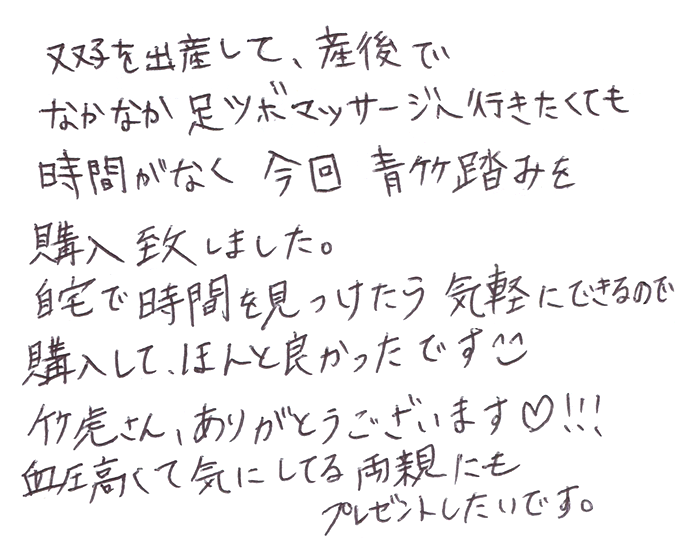 双子を出産して、産後で
なかなか足ツボマッサージへ行きたくても
時間がなく 今回 青竹踏みを
購入致しました。
自宅で時間を見つけたら 気軽にできるので
購入して、ほんと良かったです
竹虎さん、ありがとうございます♡!!!
血圧高くて気にしてる両親にも
プレゼントしたいです。